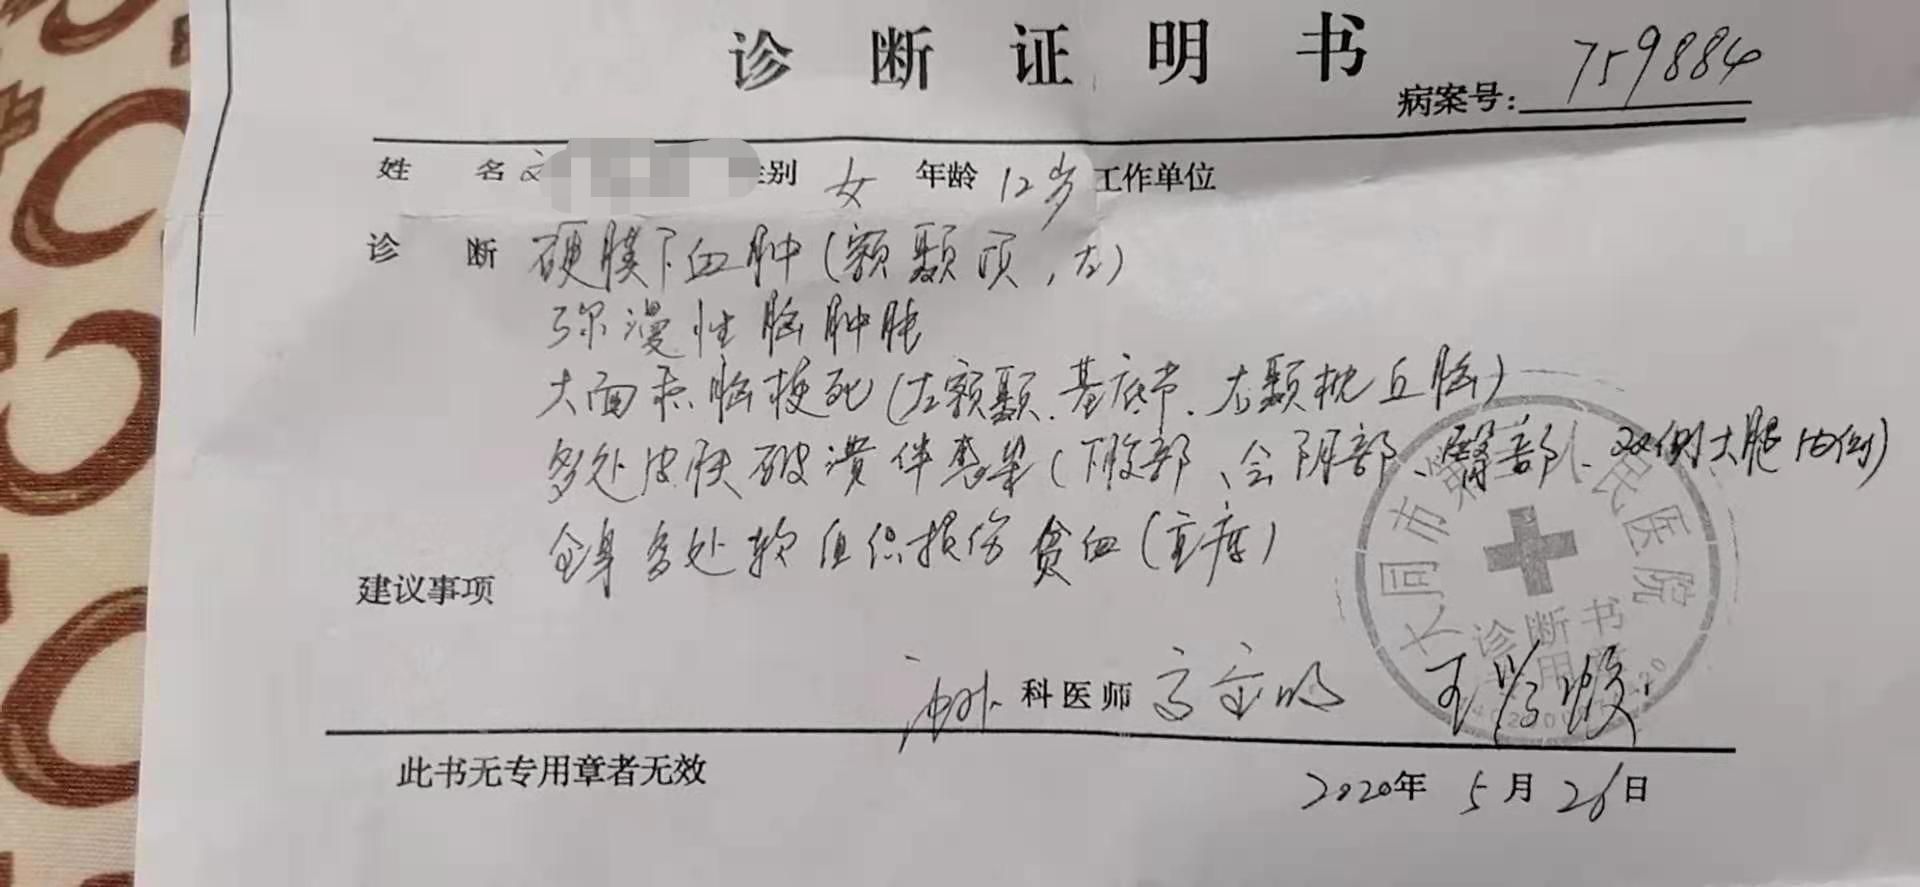 诊断证明书
病案号: 759884
姓 名 性别 女 年龄 12岁 工作单位
诊 断 硬膜下血肿(额颞顶,左)
弥漫性脑肿胀
大面积脑梗死(左额颞、基底节、右颞枕丘脑)
多处皮肤破溃伴感染(下腹部、会阴部、臀部、双侧大腿内侧)
全身多处软组织损伤 贫血(重度)
建议事项
大同市第 人民医院
诊断书
专用章
科医师
此书无专用章者无效
2020年5月26日